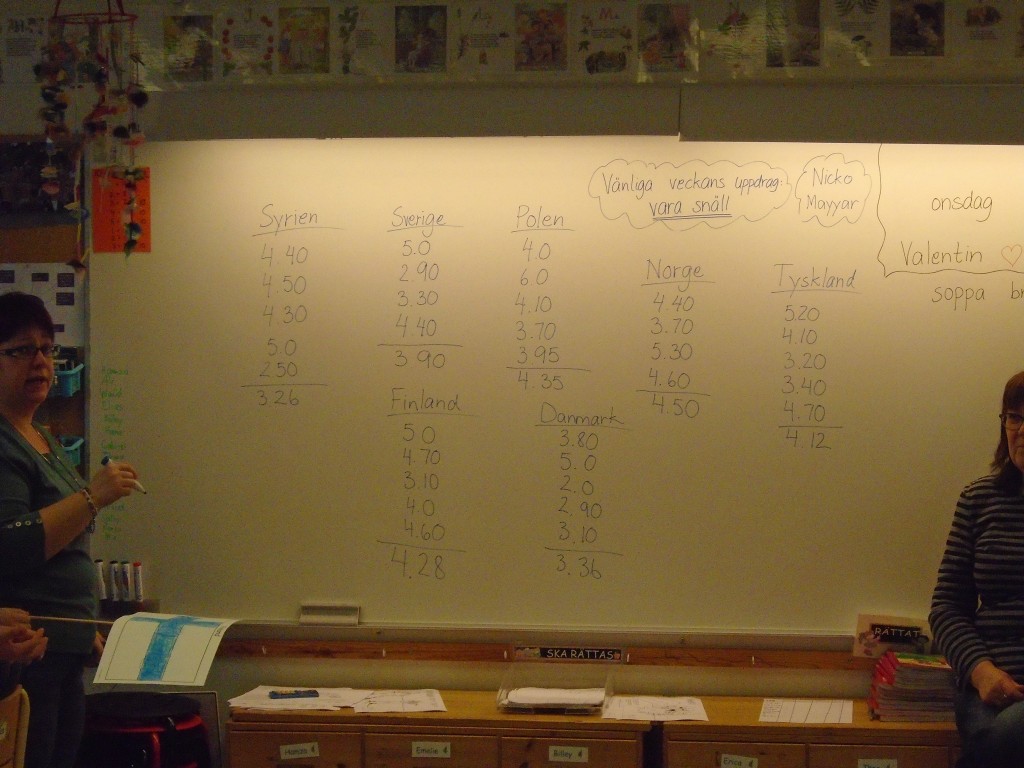 Vänliga veckans uppdrag:
vara snäll
Nicko
Mayyar
onsdag
Valentin ♡
soppa br
Syrien
4.40
4.50
4.30
5.0
2.50
3.26
Sverige
5.0
2.90
3.30
4.40
3.90
Polen
4.0
6.0
4.10
3.70
3.95
4.35
Norge
4.40
3.70
5.30
4.60
4.50
Tyskland
5.20
4.10
3.20
3.40
4.70
4.12
Finland
5.0
4.70
3.10
4.0
4.60
4.28
Danmark
3.80
5.0
2.0
2.90
3.10
3.36
SKA RÄTTAS
RÄTTAT
Emelie
Erica